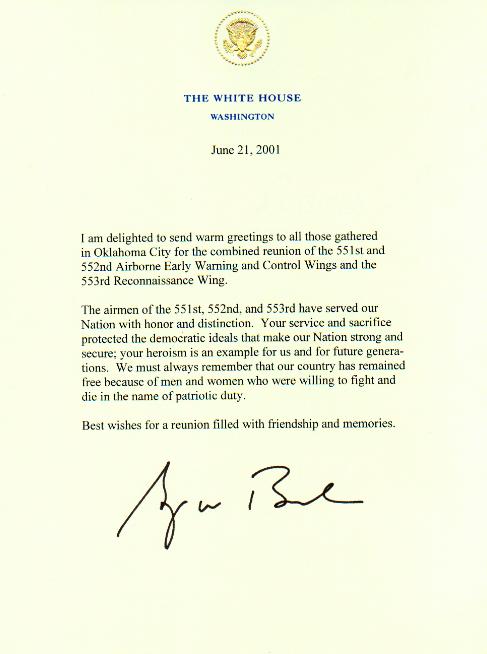 THE WHITE HOUSE
WASHINGTON
June 21, 2001
I am delighted to send warm greetings to all those gathered
in Oklahoma City for the combined reunion of the 551st and
552nd Airborne Early Warning and Control Wings and the
553rd Reconnaissance Wing.
The airmen of the 551st, 552nd, and 553rd have served our
Nation with honor and distinction.  Your service and sacrifice
protected the democratic ideals that make our Nation strong and
secure; your heroism is an example for us and for future genera-
tions.  We must always remember that our country has remained
free because of men and women who were willing to fight and
die in the name of patriotic duty.
Best wishes for a reunion filled with friendship and memories.